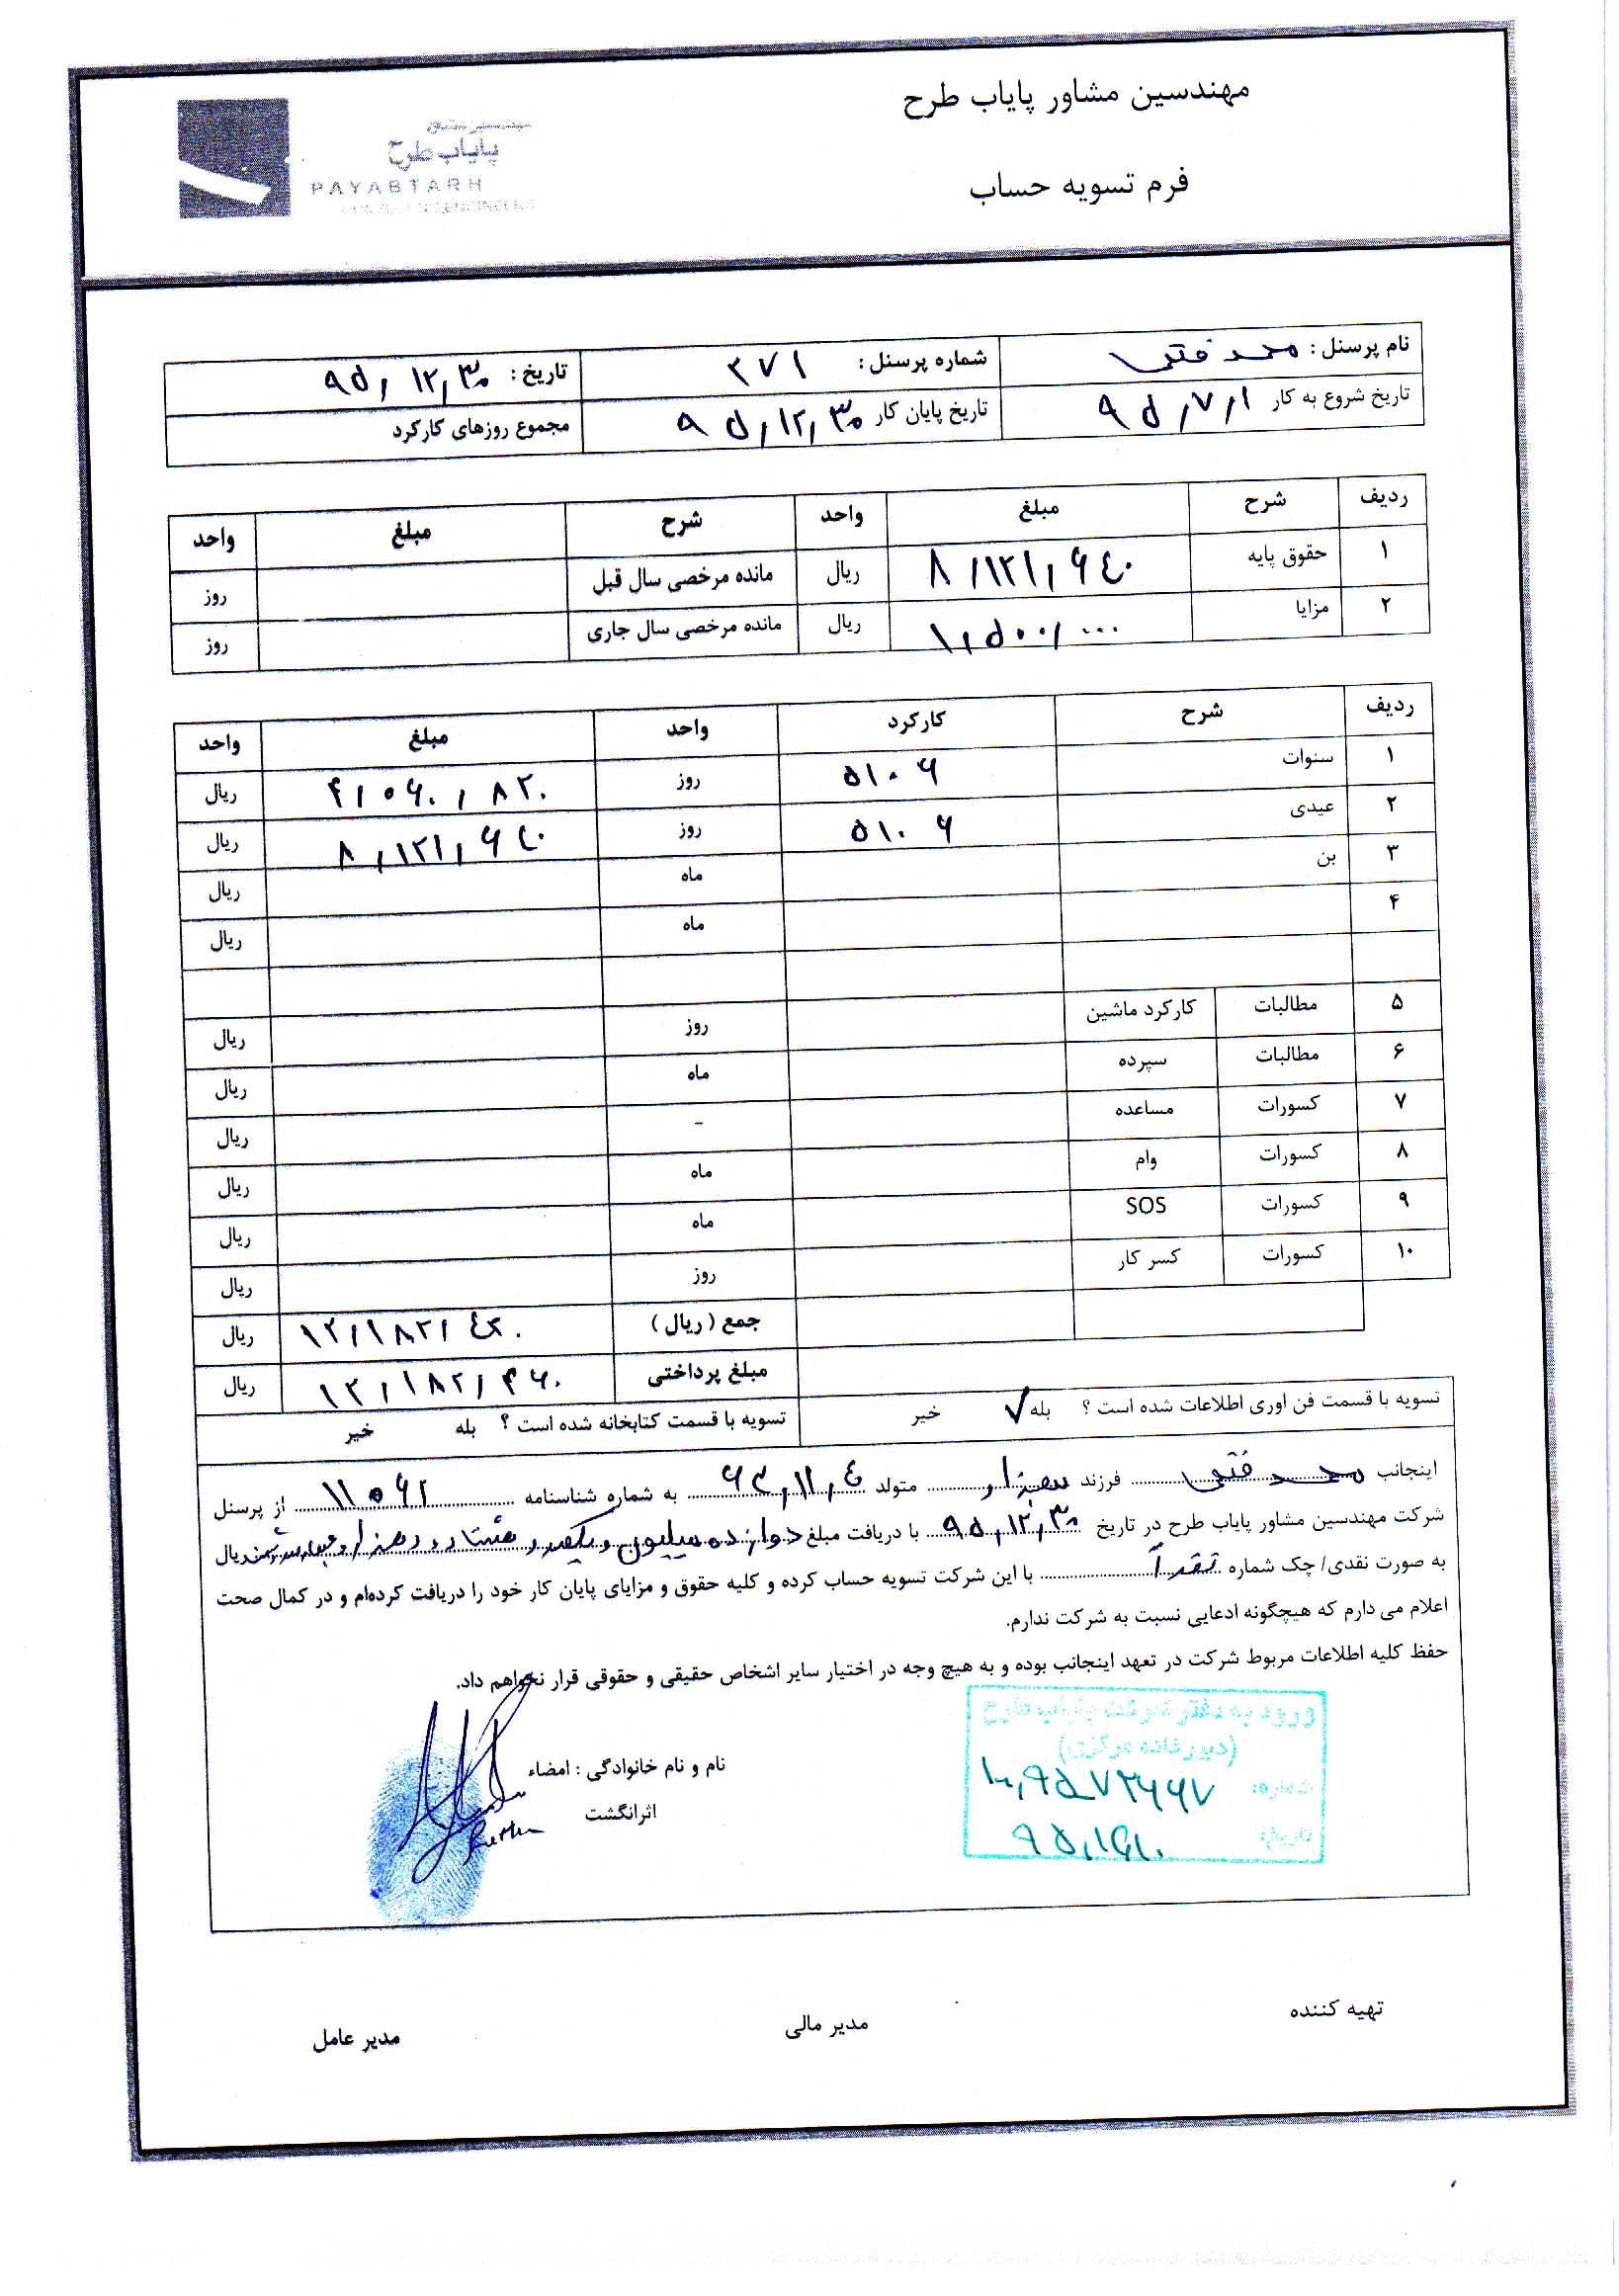 مهندسین مشاور پایاب طرح
فرم تسویه حساب
پایاب طرح
PAYABTARH
نام پرسنل : محمد فتحی شماره پرسنل : ۲۷۱ تاریخ : ۹۵,۱۲,۳۰
تاریخ شروع به کار ۹۵,۷,۱ تاریخ پایان کار ۹۵,۱۲,۳۰ مجموع روزهای کارکرد
ردیف شرح مبلغ واحد شرح مبلغ واحد
۱ حقوق پایه ۸,۱۲۱,۶۴۰ ریال مانده مرخصی سال قبل روز
۲ مزایا ۱,۵۰۰,۰۰۰ ریال مانده مرخصی سال جاری روز
ردیف شرح کارکرد واحد مبلغ واحد
۱ سنوات ۵۱۰۶ روز ۴,۰۶۰,۸۲۰ ریال
۲ عیدی ۵۱۰۶ روز ۸,۱۲۱,۶۴۰ ریال
۳ بن ماه ریال
۴ ماه ریال
۵ مطالبات کارکرد ماشین روز ریال
۶ مطالبات سپرده ماه ریال
۷ کسورات مساعده - ریال
۸ کسورات وام ماه ریال
۹ کسورات SOS ماه ریال
۱۰ کسورات کسر کار روز ریال
جمع ( ریال ) ۱۲,۱۸۲,۴۶۰ ریال
مبلغ پرداختی ۱۲,۱۸۲,۴۶۰ ریال
تسویه با قسمت فن اوری اطلاعات شده است ؟ بله ✓ خیر تسویه با قسمت کتابخانه شده است ؟ بله خیر
اینجانب محمد فتحی فرزند متولد ۶۲,۱۱,۴ به شماره شناسنامه ۱۱۵۶۲ از پرسنل
شرکت مهندسین مشاور پایاب طرح در تاریخ ۹۵,۱۲,۳۰ با دریافت مبلغ دوازده میلیون و یکصد و هشتاد و دو هزار و ریال
به صورت نقدی/ چک شماره نقداً با این شرکت تسویه حساب کرده و کلیه حقوق و مزایای پایان کار خود را دریافت کرده‌ام و در کمال صحت
اعلام می دارم که هیچگونه ادعایی نسبت به شرکت ندارم.
حفظ کلیه اطلاعات مربوط شرکت در تعهد اینجانب بوده و به هیچ وجه در اختیار سایر اشخاص حقیقی و حقوقی قرار نخواهم داد.
ورود به دفتر شرکت پایاب طرح
(دبیرخانه مرکزی)
شماره:
تاریخ:
نام و نام خانوادگی : امضاء
اثرانگشت
تهیه کننده مدیر مالی مدیر عامل